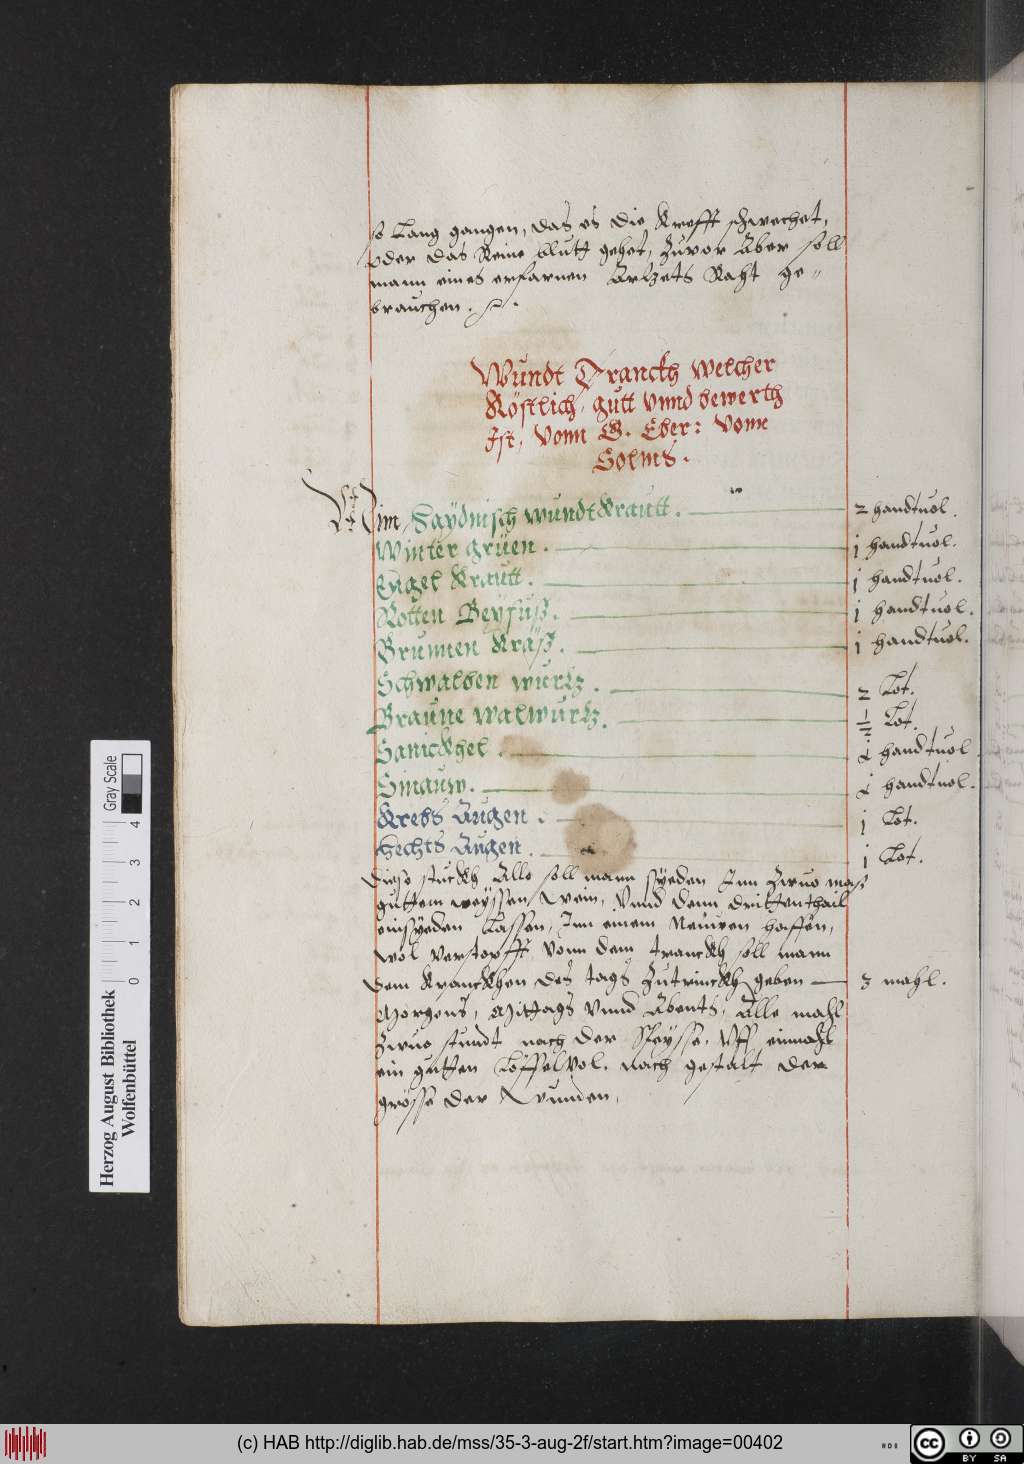 so Lang gangen, das es die Krefft schwechet,
oder das Reine blutt gehet, Zuvor Aber soll
mann eines erfarnen Artzets Raht ge„
brauchen.
Wundt Tranckh welcher
Köstlich, gutt vnnd bewerth
Ist, vonn G. Eber: vonn
Solms.
Nim Haydnisch wundtkrautt. 2 handtuol.
Winter grüen. j handtuol.
Engel Krautt. j handtuol.
Rotten Beyfuß. j handtuol.
Brunnen Kräß. j handtuol.
Schwalben wurtz. 2 Lot.
Braune walwurtz. ½ Lot.
Sanickhel. j handtuol
Sinauw. j handtuol.
Krebs Augen. j Lot.
Hechts Augen. j Lot.
Diese stuckh Alle soll mann syeden Inn Zwuo mas
guttem weyssen wein, Vnnd denn drittenthail
einsyeden Lassen, Inn einem Neuwen haffen,
wol verstopfft, vonn dem tranckh soll mann
dem Kranckhen des tags Zutrinckh geben 3 mahl.
Morgens, Mittags vnnd Abents, Alle mahl
Zwuo stundt nach der Speysse, Vff einmahl
ein gutten Löffelvol. nach gestalt der
grösse der Wunden.
Gray Scale
0 1 2 3 4
Herzog August Bibliothek
Wolfenbüttel
(c) HAB http://diglib.hab.de/mss/35-3-aug-2f/start.htm?image=00402
cc BY SA